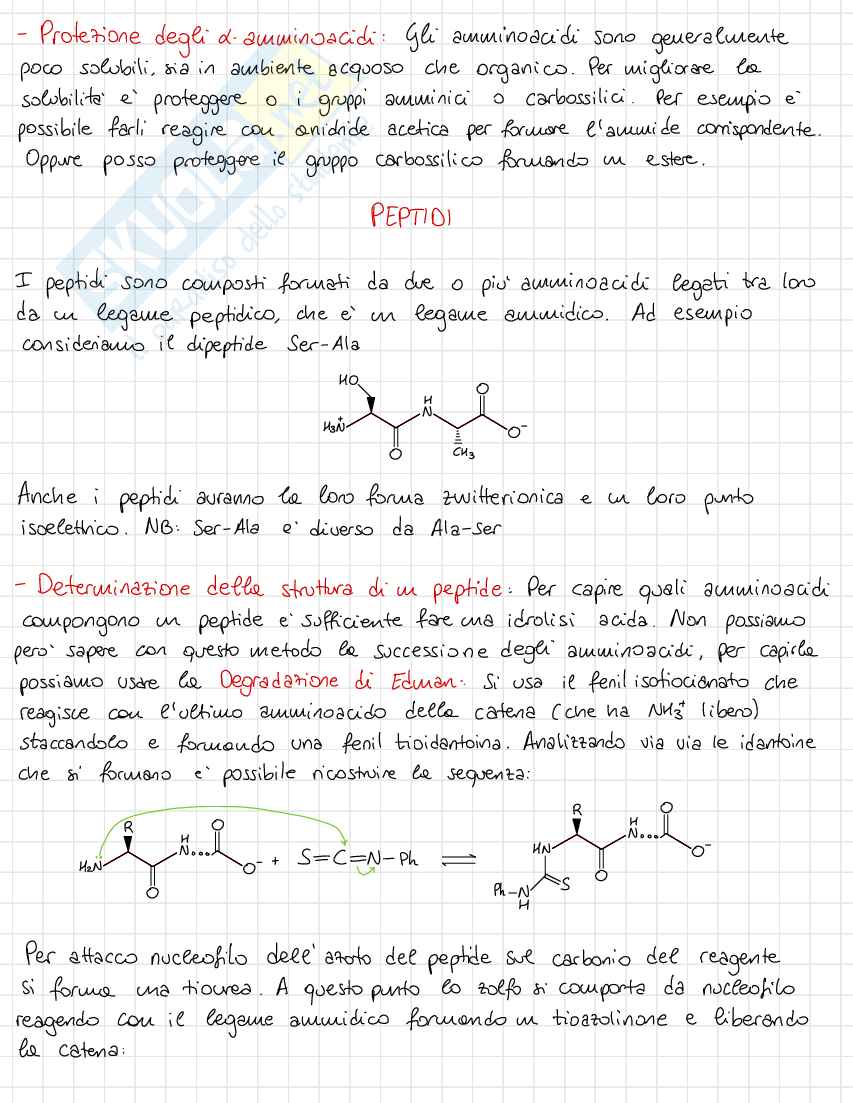 - Protezione degli α-amminoacidi: Gli amminoacidi sono generalmente
poco solubili, sia in ambiente acquoso che organico. Per migliorare la
solubilità è proteggere o i gruppi amminici o carbossilici. Per esempio è
possibile farli reagire con anidride acetica per formare l'ammide corrispondente.
Oppure posso proteggere il gruppo carbossilico formando un estere.
PEPTIDI
I peptidi sono composti formati da due o più amminoacidi legati tra loro
da un legame peptidico, che è un legame ammidico. Ad esempio
consideriamo il dipeptide Ser-Ala
HO
H
N
O
H₃N⁺
O⁻
O
CH₃
Anche i peptidi avranno la loro forma zwitterionica e un loro punto
isoelettrico. NB: Ser-Ala è diverso da Ala-Ser
- Determinazione della struttura di un peptide: Per capire quali amminoacidi
compongono un peptide è sufficiente fare una idrolisi acida. Non possiamo
però sapere con questo metodo la successione degli amminoacidi, per capirla
possiamo usare la Degradazione di Edman: Si usa il fenil isotiocianato che
reagisce con l'ultimo amminoacido della catena (che ha NH₃⁺ libero)
staccandolo e formando una fenil tioidantoina. Analizzando via via le idantoine
che si formano è possibile ricostruire la sequenza:
R H N O H₂N O O⁻ + S=C=N-Ph ⇌ R H N O HN O O⁻ Ph-N H S
Per attacco nucleofilo dell'azoto del peptide sul carbonio del reagente
si forma una tiourea. A questo punto lo zolfo si comporta da nucleofilo
reagendo con il legame ammidico formando un tioazolinone e liberando
la catena:
SKUOLA.net
il paradiso dello studente